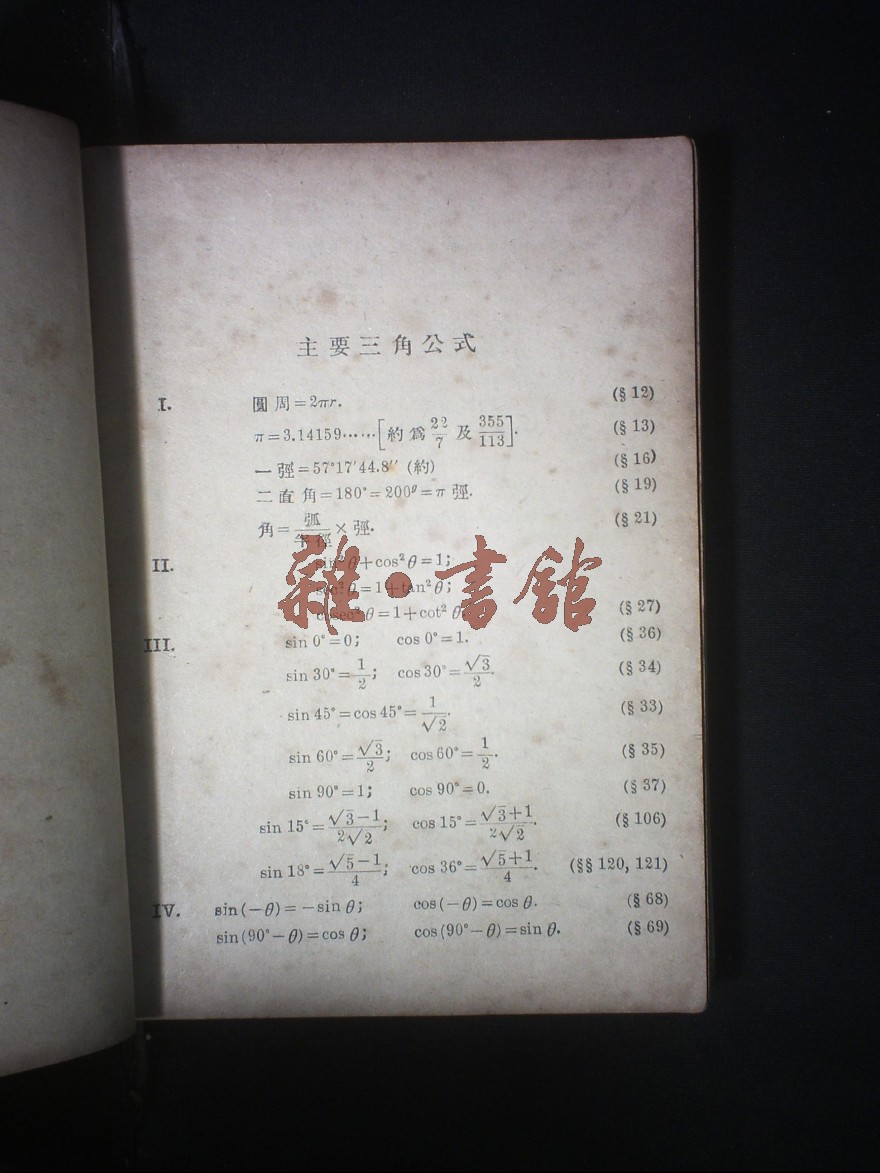 主要三角公式
I. 圓周=2πr. (§ 12)
π=3.14159……[約爲 22/7 及 355/113]. (§ 13)
一弳=57°17′44.8″ (約) (§ 16)
二直角=180°=200ᵍ=π 弳. (§ 19)
角=弧/半徑×弳. (§ 21)
II. sin²θ+cos²θ=1;
sec²θ=1+tan²θ;
cosec²θ=1+cot²θ (§ 27)
III. sin 0°=0; cos 0°=1. (§ 36)
sin 30°=1/2; cos 30°=√3/2. (§ 34)
sin 45°=cos 45°=1/√2. (§ 33)
sin 60°=√3/2; cos 60°=1/2. (§ 35)
sin 90°=1; cos 90°=0. (§ 37)
sin 15°=(√3−1)/(2√2); cos 15°=(√3+1)/(2√2). (§ 106)
sin 18°=(√5−1)/4; cos 36°=(√5+1)/4. (§§ 120, 121)
IV. sin(−θ)=−sin θ; cos(−θ)=cos θ. (§ 68)
sin(90°−θ)=cos θ; cos(90°−θ)=sin θ. (§ 69)
雜·書館